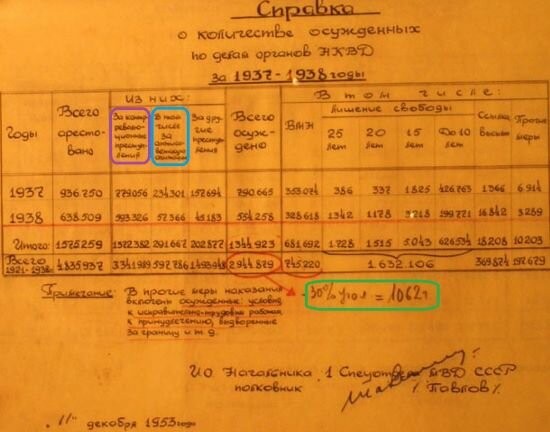 Справка
о количестве осужденных
по делам органов НКВД
за 1937-1938 годы
Годы
Всего арестовано
Из них:
За контрреволюционные преступления
В том числе за антисоветскую агитацию
За другие преступления
Всего осуждено
В том числе:
ВМН
лишение свободы
25 лет
20 лет
15 лет
До 10 лет
Ссылка высылка
Прочие меры
1937 936.750 779056 234301 157694 790.665 353074 386 337 1825 426763 1366 6.914
1938 638.509 593326 57366 45183 554.258 328618 1342 1178 3218 199771 16842 3289
Итого: 1575259 1372382 291.667 202877 1344923 681692 1728 1.515 5.043 626534 18208 10203
Всего 1921-1938г 4835937 3341989 597786 1493948 2944879 745220 1.632.106 369874 197679
- 30% угол = 1062т
Примечание: В прочие меры наказания
включены осужденные: условно
к исправительно-трудовым работам
к принудлечению, выдворение
за границу и т.д.
ИО Начальника 1 Спецотдела МВД СССР
полковник / Павлов /
"11" декабря 1953 года